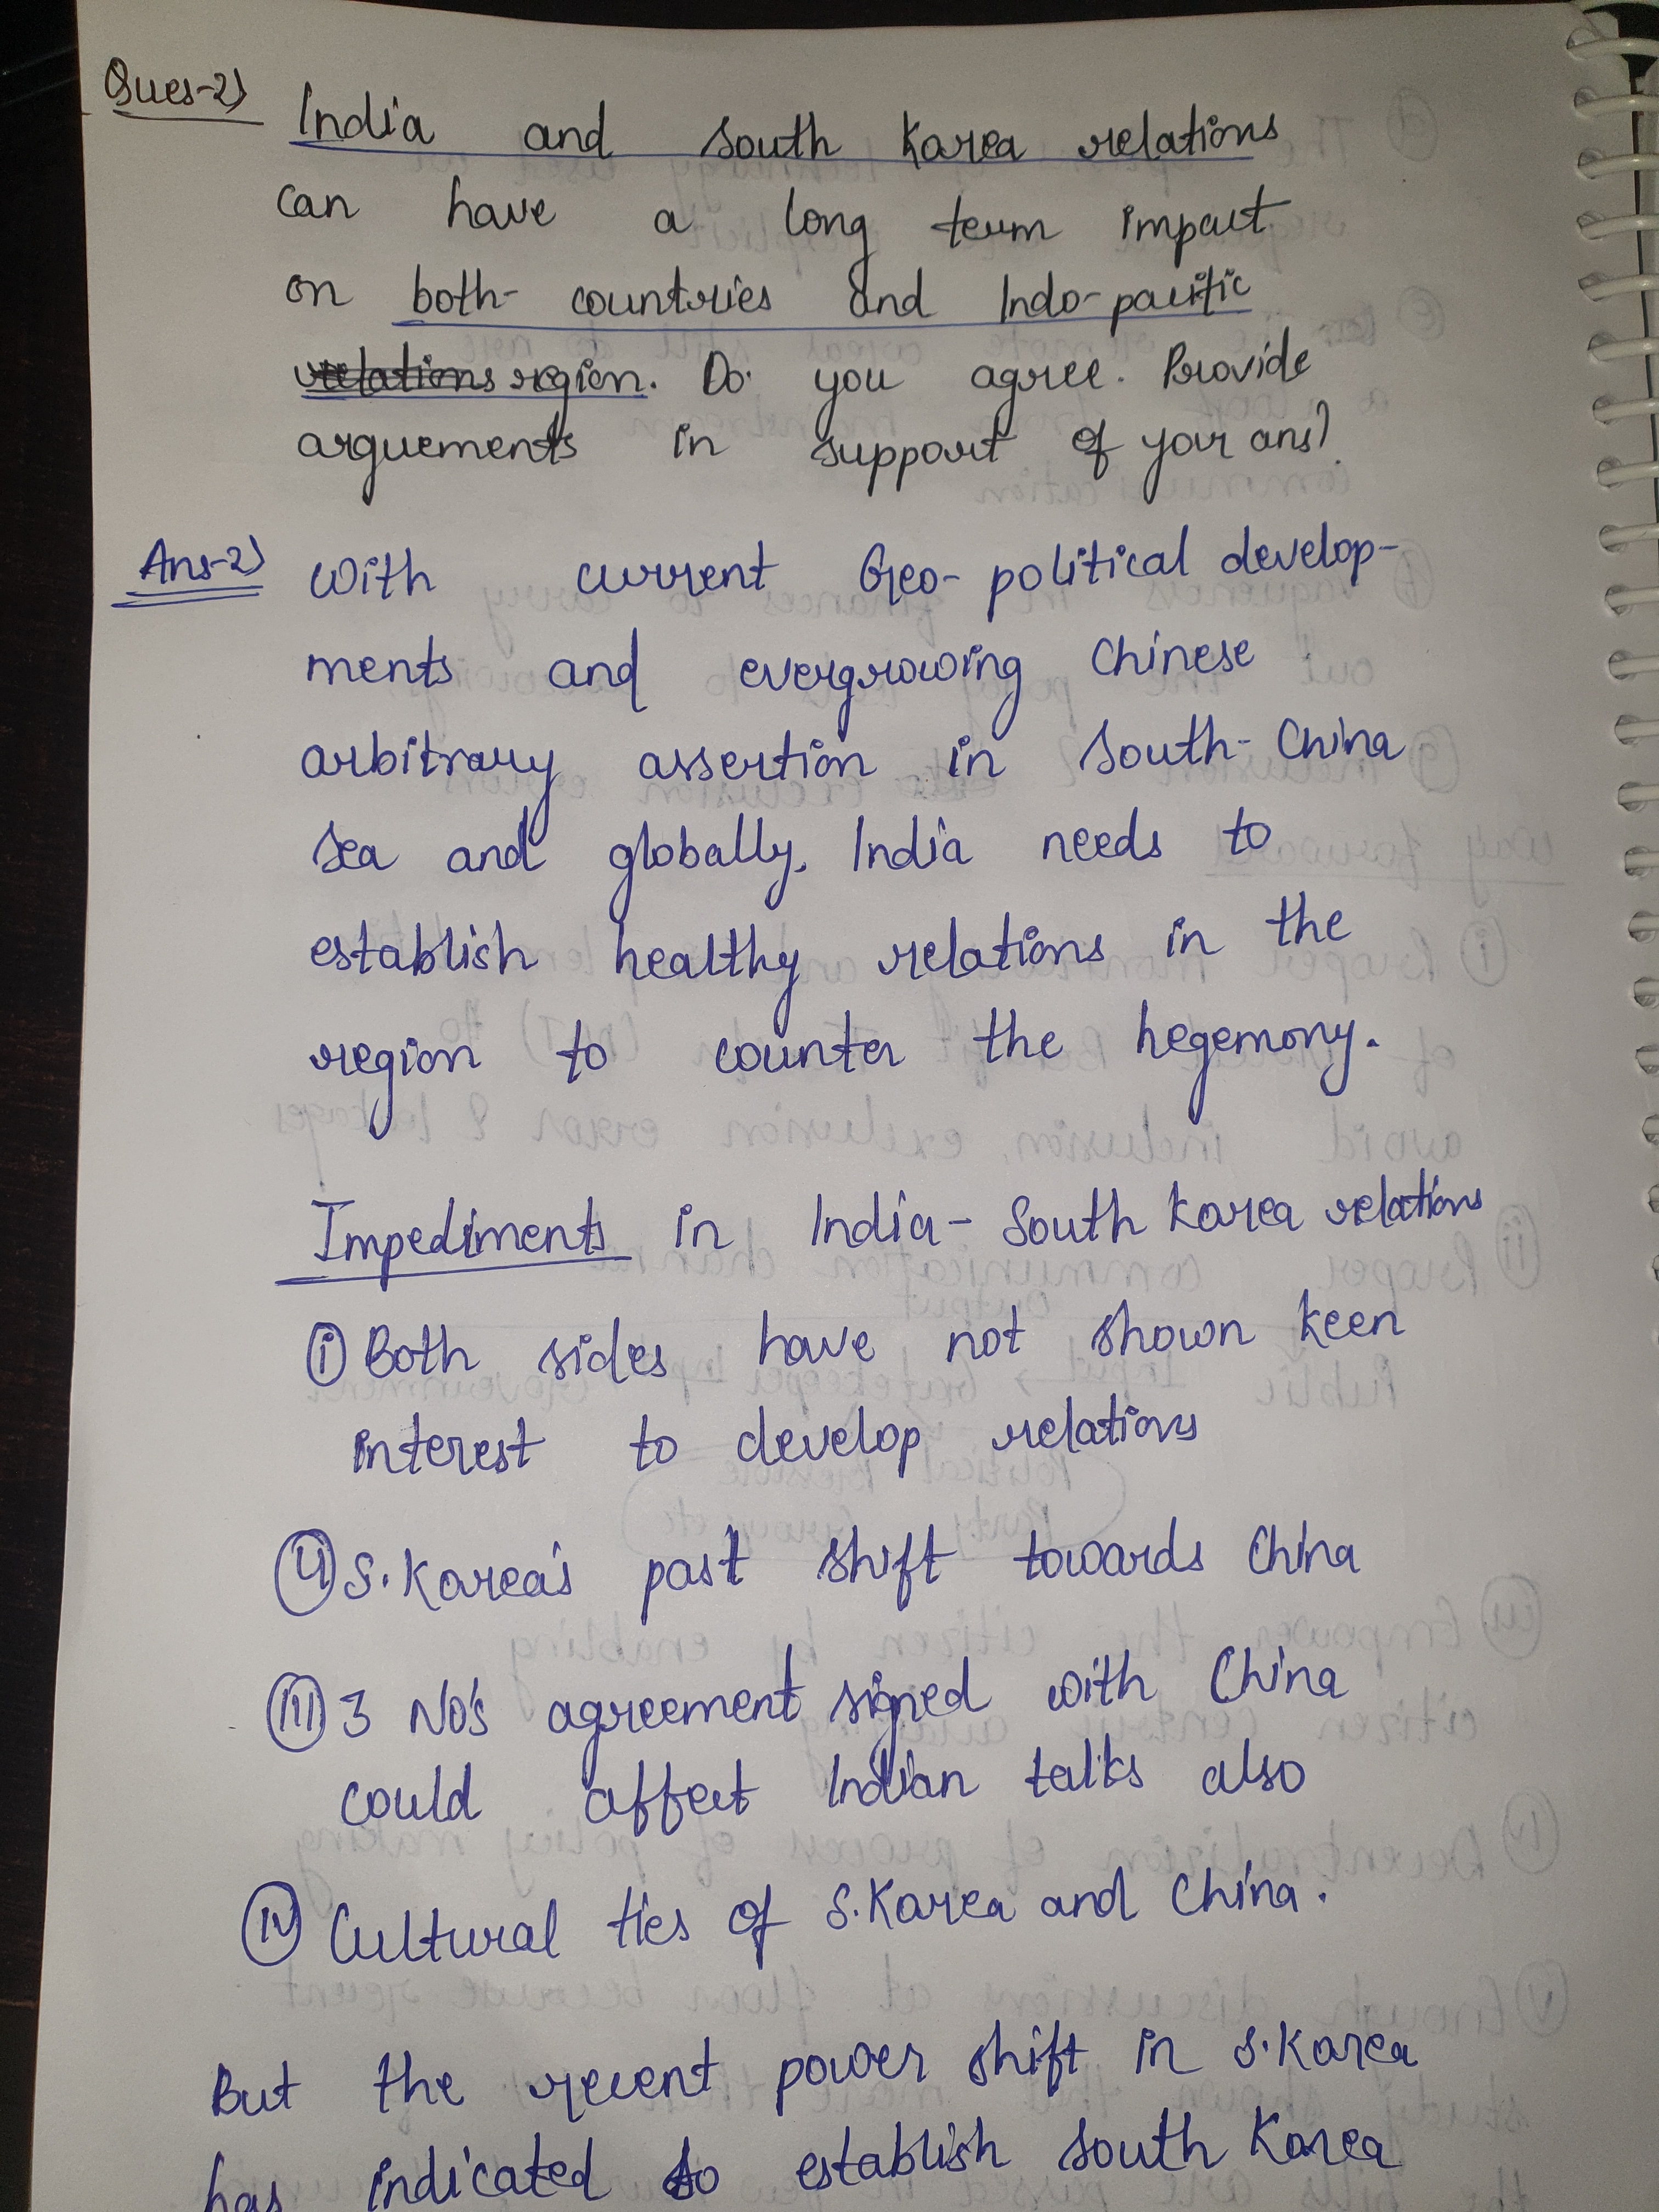 Ques-2)
India and South Korea relations
can have a long term impact
on both countries and Indo-pacific
relations region. Do you agree. Provide
arguements in support of your ans?
Ans-2) With current Geo-political develop-
ments and evergrowing Chinese
arbitrary assertion in South-China
Sea and globally, India needs to
establish healthy relations in the
region to counter the hegemony.
Impediments in India-South Korea relations
(i) Both sides have not shown keen
interest to develop relations
(ii) S.Korea's past shift towards China
(iii) 3 No's agreement signed with China
could affect Indian talks also
(iv) Cultural ties of S.Korea and China.
But the recent power shift in S.Korea
has indicated to establish South Korea